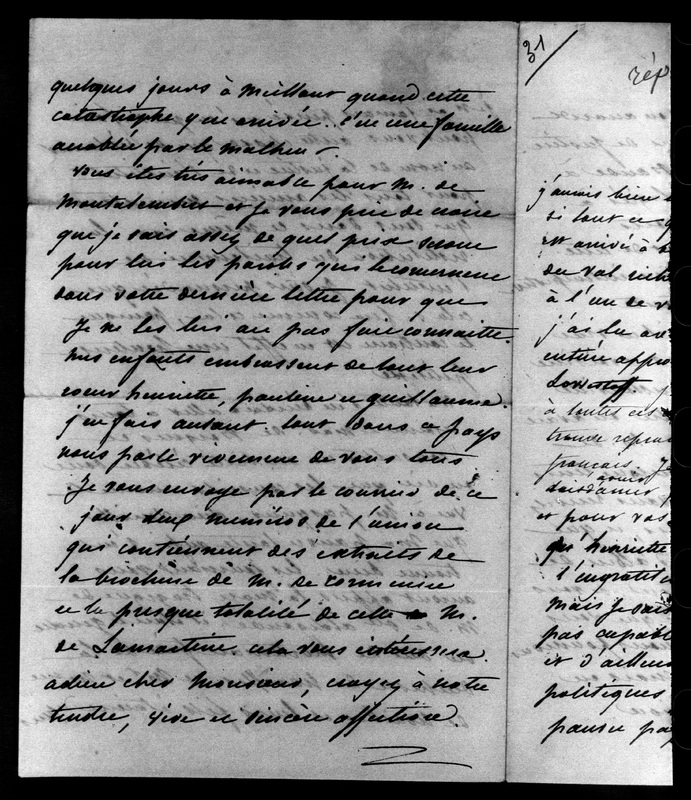 quelques jours à Meillant quand cette
catastrophe y est arrivée. c'est une famille
accablée par le malheur —
vous êtes très aimable pour M. de
Montalembert et je vous prie de croire
que je sais assez de quel prix
pour lui les paroles qui le concernent
dans votre dernière lettre pour que
Je ne les lui aie pas fait connaître.
mes enfants embrassent de tout leur
coeur henriette, pauline et guillaume.
j'en fais autant tout dans ce pays
nous parle vivement de vous tous
Je vous envoye par le courrier de ce
jour deux numéros de l'union
qui contiennent des extraits de
la brochure de M. de Cormenin
et la presque totalité de celle de M.
de Lamartine cela vous intéressera.
adieu cher Monsieur, croyez à notre
tendre, vive et sincère affection.
31
rép
j'aurais bien
si tout ce q
est arrivé à
du val rich
à l'un de v
j'ai lu
entière appro
à toutes ces
français. Je
et pour vos
qu'henriette
l'ingratit
mais je sais
pas capabl
et d'ailleu
politiques